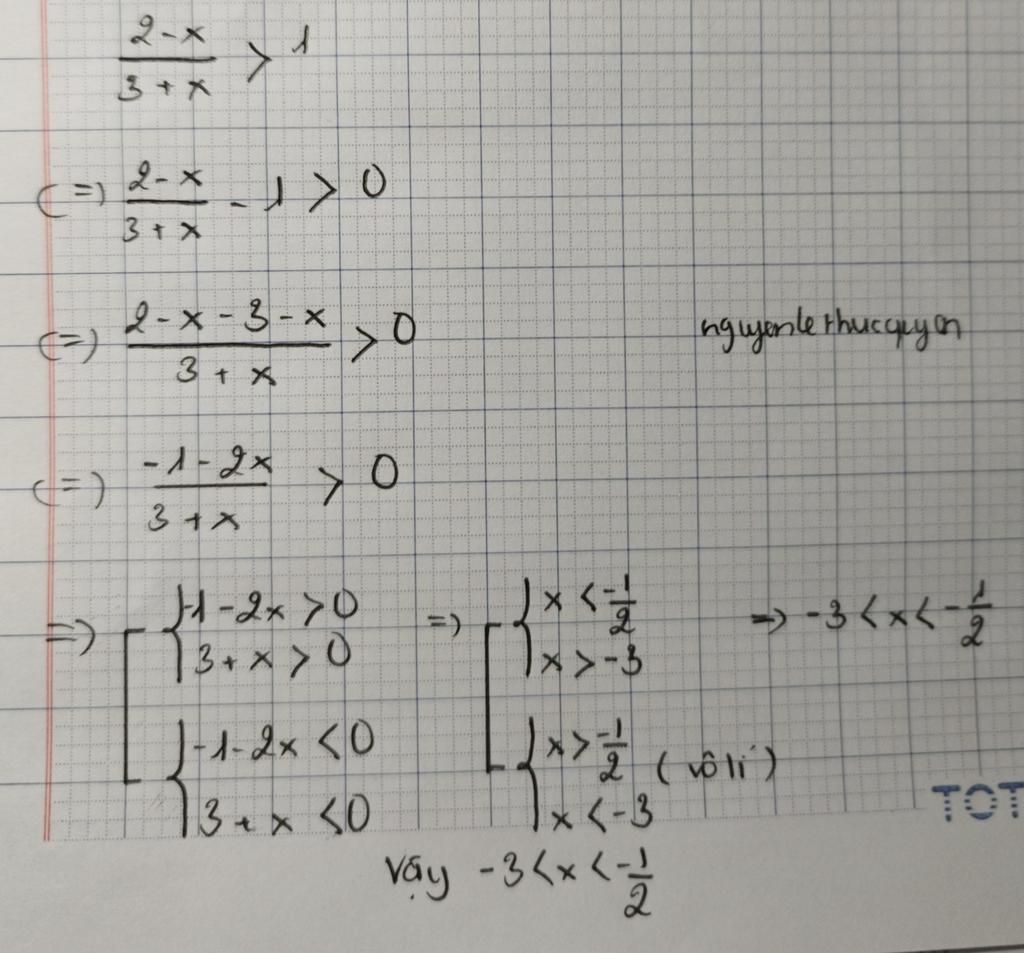 \frac{2-x}{3+x} > 1
(=) \frac{2-x}{3+x} - 1 > 0
(=) \frac{2-x-3-x}{3+x} > 0
nguyenlethucquyen
(=) \frac{-1-2x}{3+x} > 0
=) [ { -1-2x > 0 =) [ { x < \frac{-1}{2} => -3 < x < -\frac{1}{2}
3+x > 0 x > -3
{ -1-2x < 0 { x > \frac{-1}{2} (vô lí)
3+x < 0 x < -3
TOT
Vậy -3 < x < \frac{-1}{2}